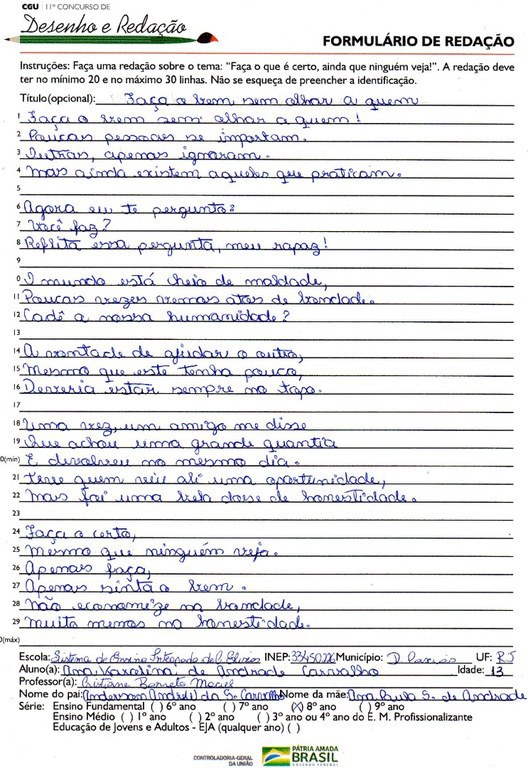 CGU | 11º CONCURSO DE
Desenho e Redação
FORMULÁRIO DE REDAÇÃO
Instruções: Faça uma redação sobre o tema: "Faça o que é certo, ainda que ninguém veja!". A redação deve
ter no mínimo 20 e no máximo 30 linhas. Não se esqueça de preencher a identificação.
Título(opcional): Faça o bem sem olhar a quem
1 Faça o bem sem olhar a quem!
2 Poucas pessoas se importam.
3 Outras, apenas ignoram.
4 Mas ainda existem aqueles que praticam.
5
6 Agora eu te pergunto:
7 Você faz?
8 Reflita essa pergunta, meu rapaz!
9
0 O mundo está cheio de maldade,
11 Poucas vezes vemos atos de bondade.
12 Cadê a nossa humanidade?
13
14 A vontade de ajudar o outro,
15 Mesmo que este tenha pouco,
16 Deveria estar sempre no topo.
17
18 Uma vez, um amigo me disse
19 Que achou uma grande quantia
0(mín) E devolveu no mesmo dia.
21 Teve quem veio ali uma oportunidade,
22 Mas foi uma bela dose de honestidade.
23
24 Faça o certo,
25 Mesmo que ninguém veja.
26 Apenas faça,
27 Apenas sinta o bem.
28 Não economize na bondade,
29 Muito menos na honestidade.
0(máx)
Escola: Sistema de Ensino Integrado INEP: Município: D. Caxias UF: RJ
Aluno(a): Ana Karolina de Andrade Carvalho Idade: 13
Professor(a): Cristiane Barreto Maciel
Nome do pai: Anderson da S. Carvalho Nome da mãe: Ana S. de Andrade
Série: Ensino Fundamental ( ) 6º ano ( ) 7º ano (X) 8º ano ( ) 9º ano
Ensino Médio ( ) 1º ano ( ) 2º ano ( ) 3º ano ou 4º ano do E. M. Profissionalizante
Educação de Jovens e Adultos - EJA (qualquer ano) ( )
CONTROLADORIA-GERAL
DA UNIÃO
PÁTRIA AMADA
BRASIL
GOVERNO FEDERAL